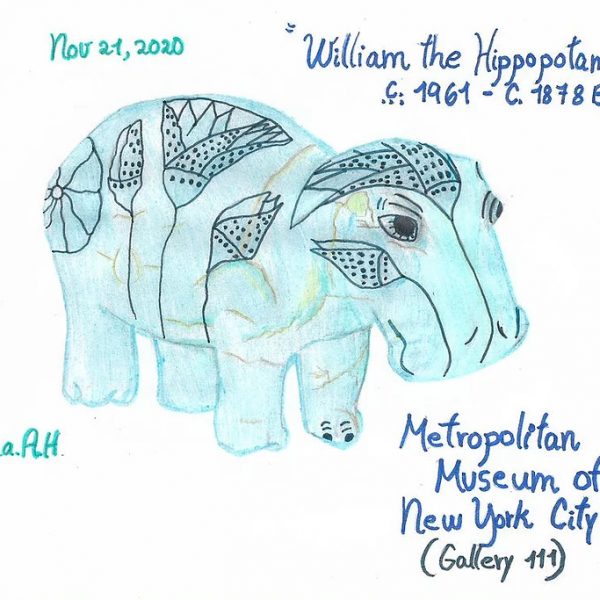 Nov 21, 2020
"William the Hippopotam
c. 1961 - c. 1878 B
a.A.H.
Metropolitan
Museum of
New York City
(Gallery 111)